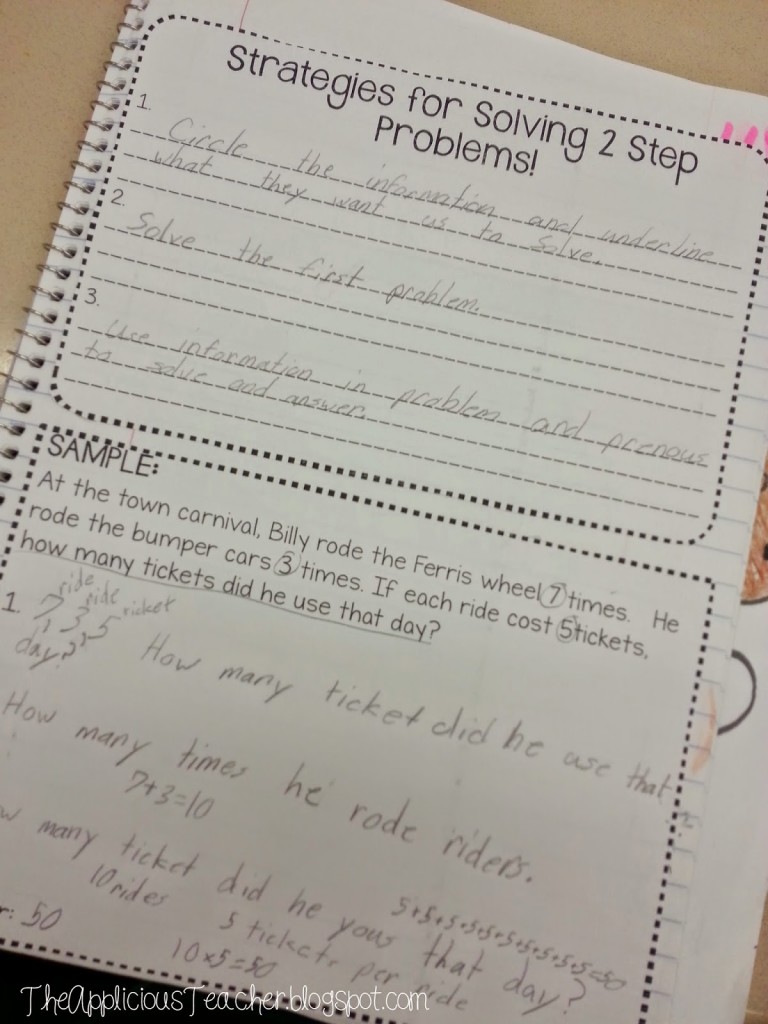 Strategies for Solving 2 Step
Problems!
1.
Circle the information and underline
what they want us to solve.
2.
Solve the first problem.
3.
Use information in problem and prenous
to solve and answer.
SAMPLE:
At the town carnival, Billy rode the Ferris wheel 7 times. He
rode the bumper cars 3 times. If each ride cost 5 tickets,
how many tickets did he use that day?
ride ride ticket
1. 7, 3, 5
How many ticket did he use that
day?
How many times he rode riders.
7+3=10
many ticket did he yous that day?
10 rides
5 tickets per ride
5+5+5+5+5+5+5+5+5+5=50
10x5=50
r: 50
TheAppliciousTeacher.blogspot.com